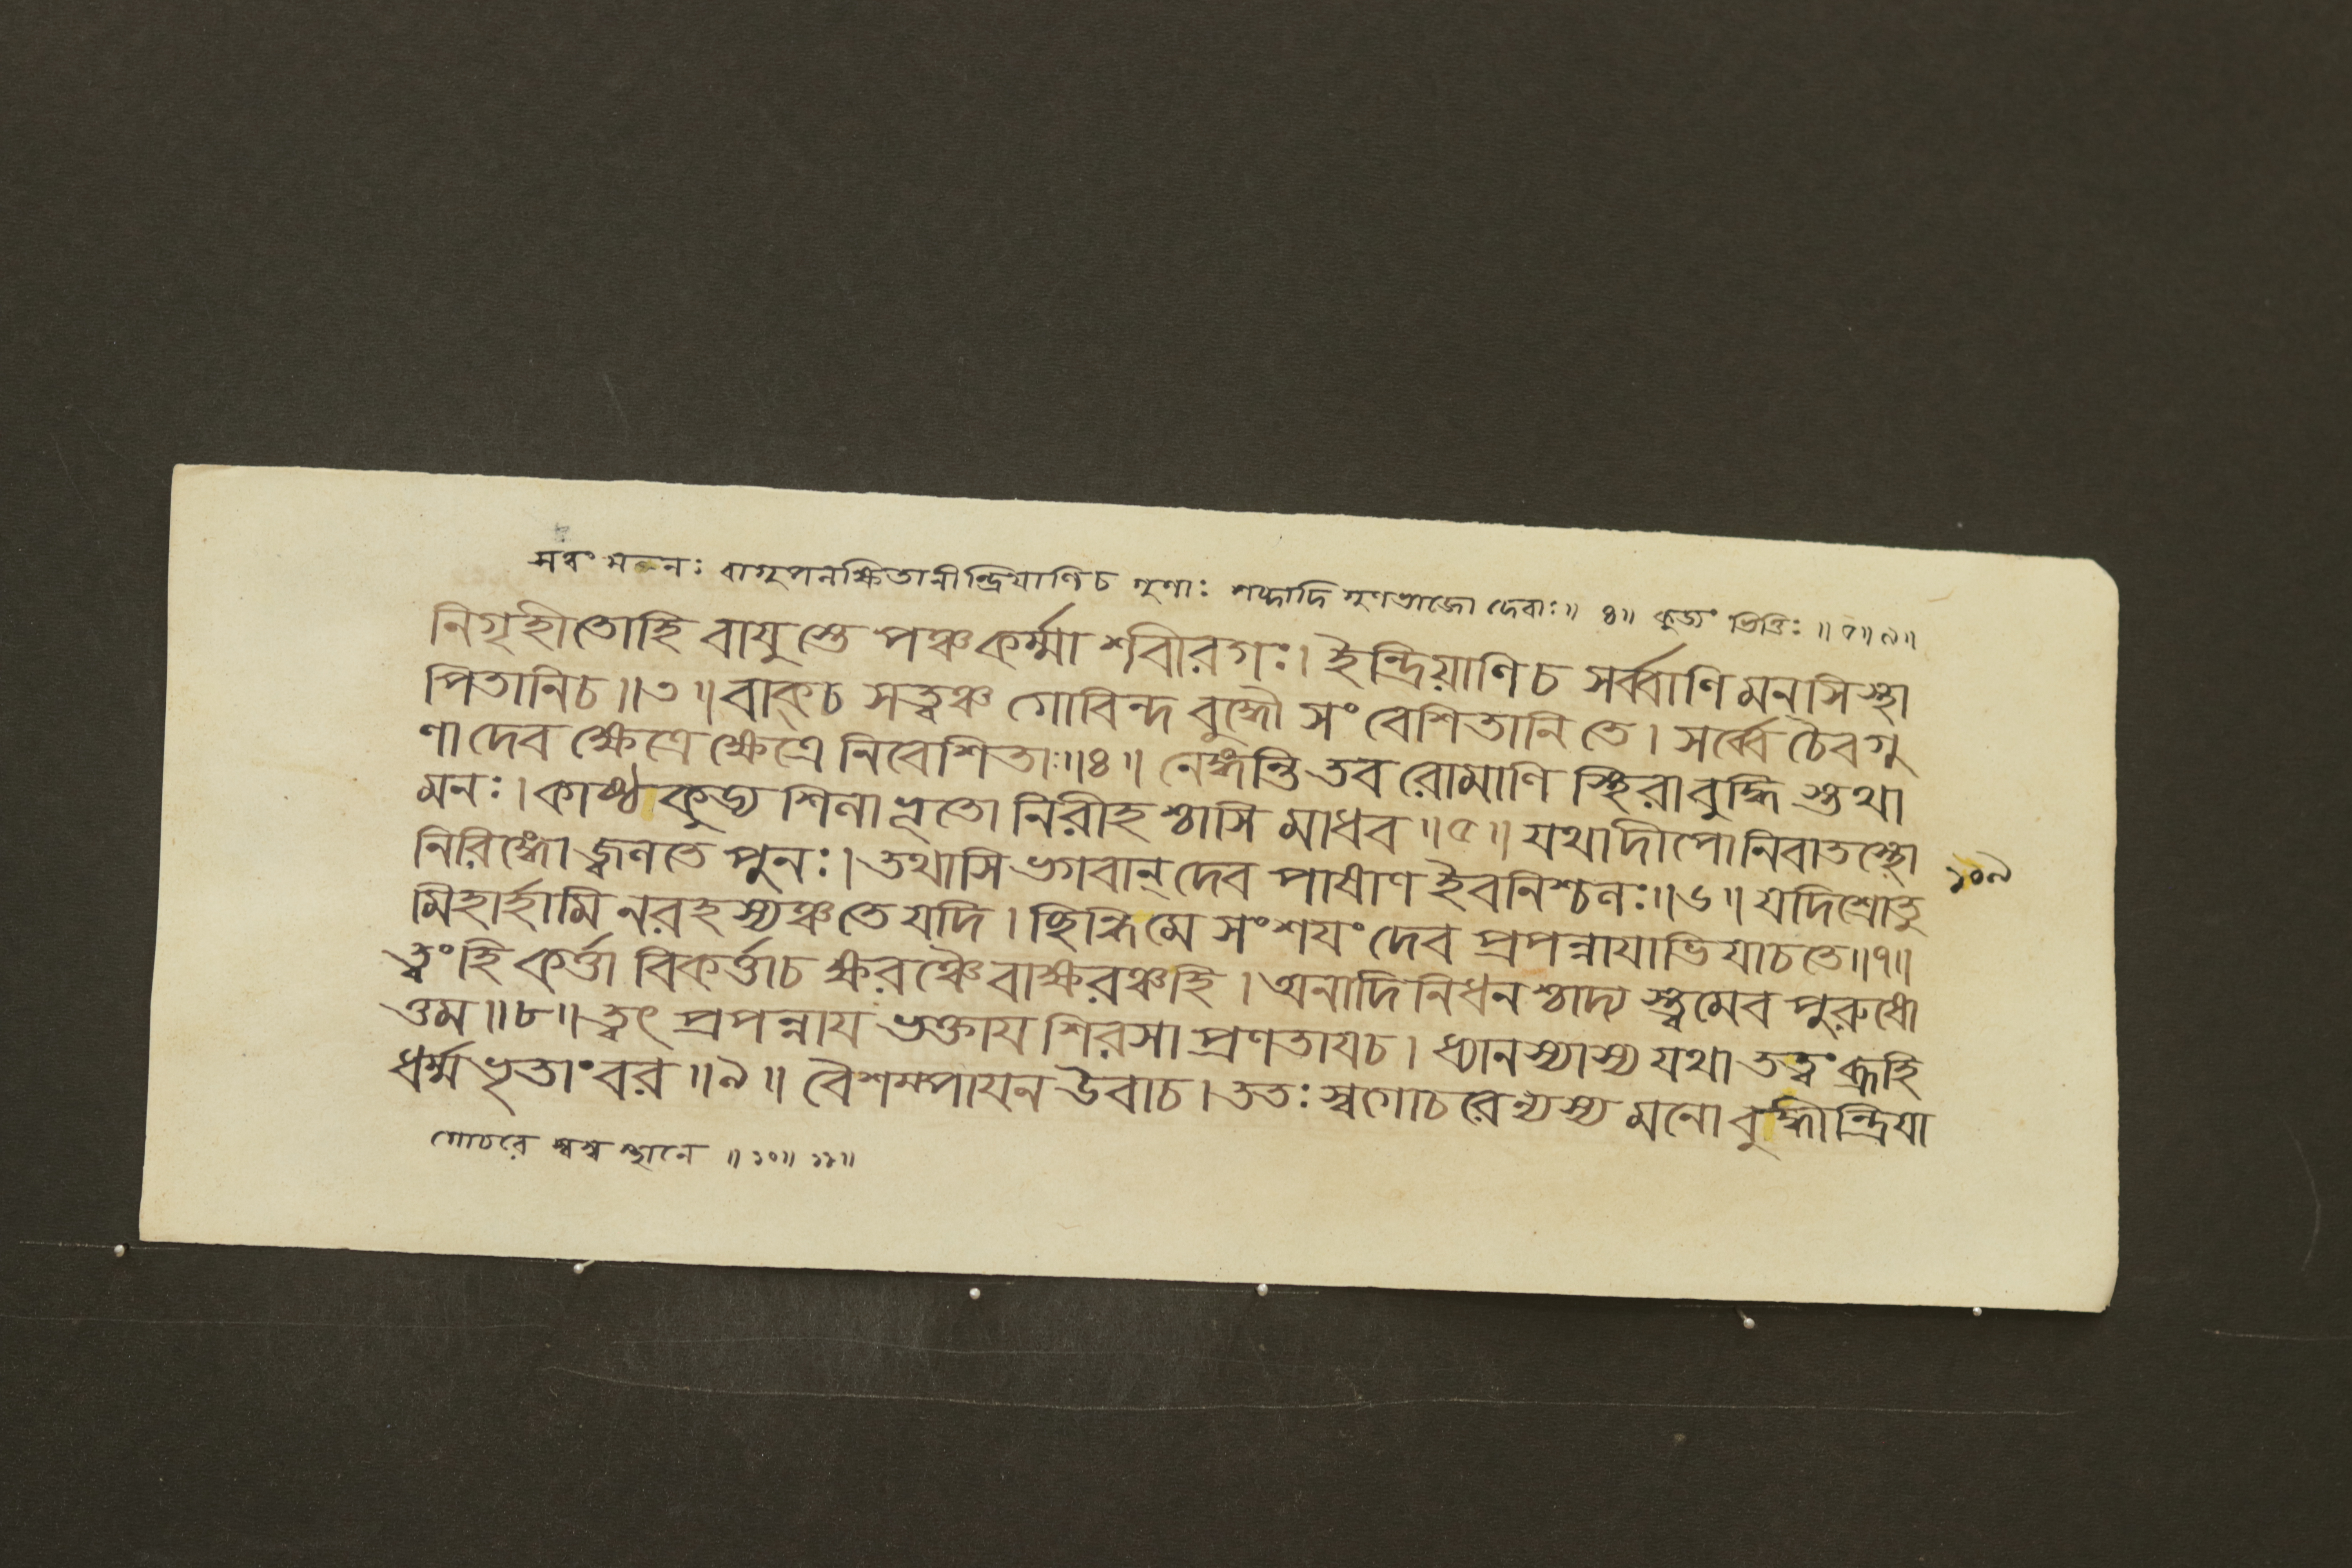 সত্বং মনঃ বাগুপলক্ষিতানীন্দ্রিয়াণি চ গুণাঃ শব্দাদি গুণভাজো দেবাঃ॥ ৪॥ কুড্যং ভিত্তিঃ ॥ ৫॥ ৬॥
নিগৃহীতোহি বায়ুস্তে পঞ্চকর্ম্মা শরীরগঃ। ইন্দ্রিয়াণি চ সর্ব্বাণি মনসি স্থা
পিতানিচ॥৩॥ বাক্চ সত্ত্বঞ্চ গোবিন্দ বুদ্ধৌ সংবেশিতানি তে। সর্ব্বে চৈবগু
ণা দেব ক্ষেত্রে ক্ষেত্রে নিবেশিতাঃ॥৪॥ নেঙ্গন্তি তব রোমাণি স্থিরা বুদ্ধি স্তথা
মনঃ। কাষ্ঠ কুড্য শিলা ভূতো নিরীহ শ্চাসি মাধব॥৫॥ যথা দীপো নিবাতস্থো
নিরিঙ্গো জ্বলতে পুনঃ। তথাসি ভগবান্ দেব পাষাণ ইবনিশ্চলঃ॥৬॥ যদিশ্রোতু
মিহার্হামি নরহস্যঞ্চ তে যদি। ছিন্ধিমে সংশয়ং দেব প্রপন্নায়াভি যাচতে॥৭॥
ত্বংহি কর্ত্তা বিকর্ত্তাচ ক্ষরঞ্চৈবাক্ষরঞ্চহি। অনাদি নিধন শ্চাদ্য স্ত্বমেব পুরুষো
ত্তম॥৮॥ ত্বৎ প্রপন্নায় ভক্তায় শিরসা প্রণতায়চ। ধ্যানস্যাস্য যথা তত্ত্বং ব্রূহি
ধর্ম্ম ভৃতাংবর॥৯॥ বৈশম্পায়ন উবাচ। ততঃ স্বগোচরেন্যস্য মনো বুদ্ধীন্দ্রিয়া
গোচরে স্বস্ব স্থানে ॥ ১০॥ ১১॥
১০৯